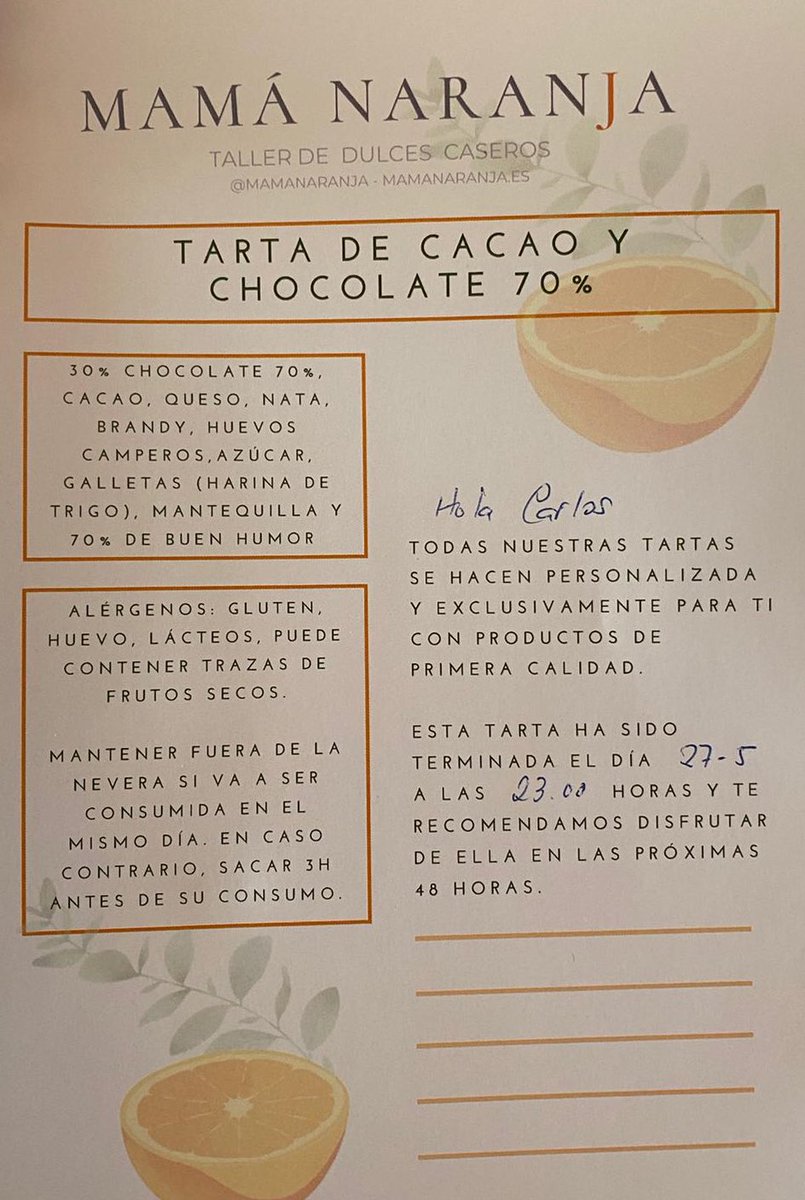 MAMÁ NARANJA
TALLER DE DULCES CASEROS
@MAMANARANJA - MAMANARANJA.ES
TARTA DE CACAO Y
CHOCOLATE 70%
30% CHOCOLATE 70%,
CACAO, QUESO, NATA,
BRANDY, HUEVOS
CAMPEROS,AZÚCAR,
GALLETAS (HARINA DE
TRIGO), MANTEQUILLA Y
70% DE BUEN HUMOR
ALÉRGENOS: GLUTEN,
HUEVO, LÁCTEOS, PUEDE
CONTENER TRAZAS DE
FRUTOS SECOS.
MANTENER FUERA DE LA
NEVERA SI VA A SER
CONSUMIDA EN EL
MISMO DÍA. EN CASO
CONTRARIO, SACAR 3H
ANTES DE SU CONSUMO.
Hola Carlos
TODAS NUESTRAS TARTAS
SE HACEN PERSONALIZADA
Y EXCLUSIVAMENTE PARA TI
CON PRODUCTOS DE
PRIMERA CALIDAD.
ESTA TARTA HA SIDO
TERMINADA EL DÍA 27-5
A LAS 23.00 HORAS Y TE
RECOMENDAMOS DISFRUTAR
DE ELLA EN LAS PRÓXIMAS
48 HORAS.